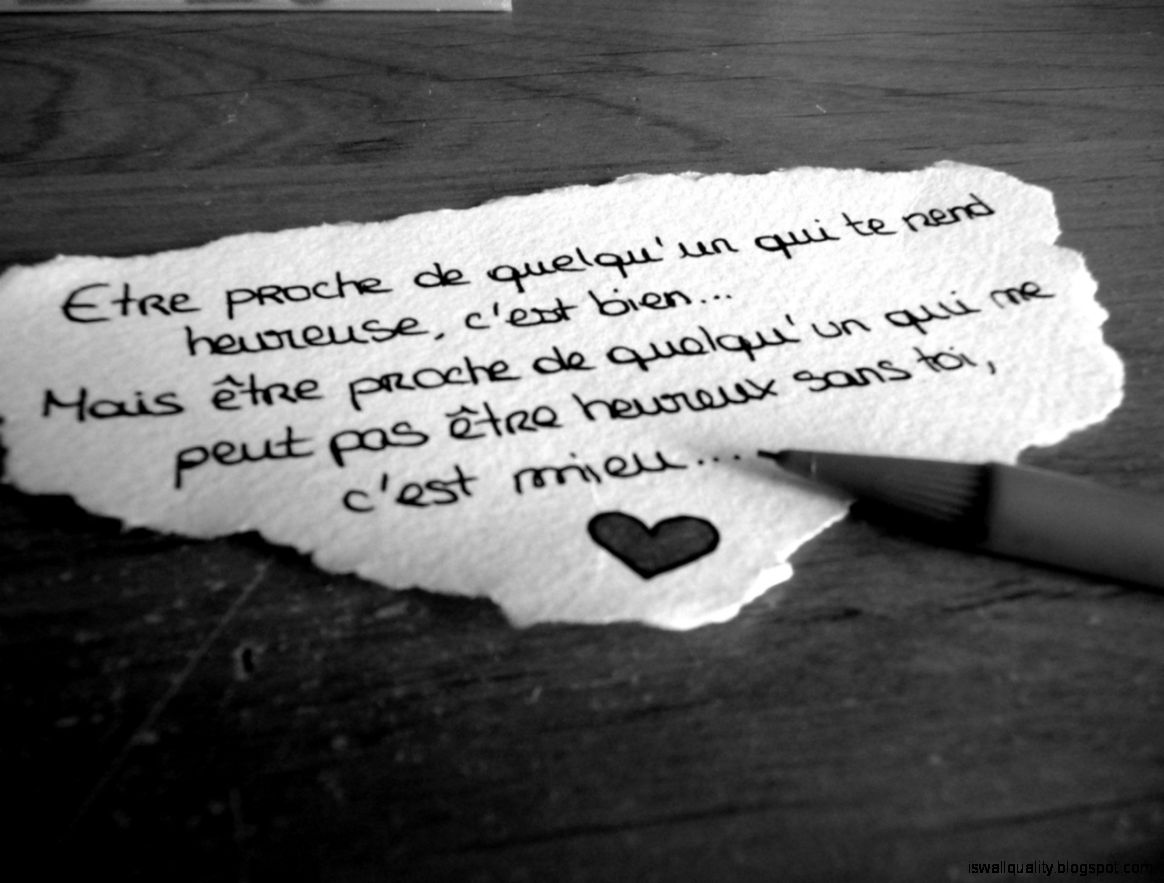 Etre proche de quelqu'un qui te rend
heureuse, c'est bien...
Mais être proche de quelqu'un qui me
peut pas être heureux sans toi,
c'est mieu....
iswallquality.blogspot.com